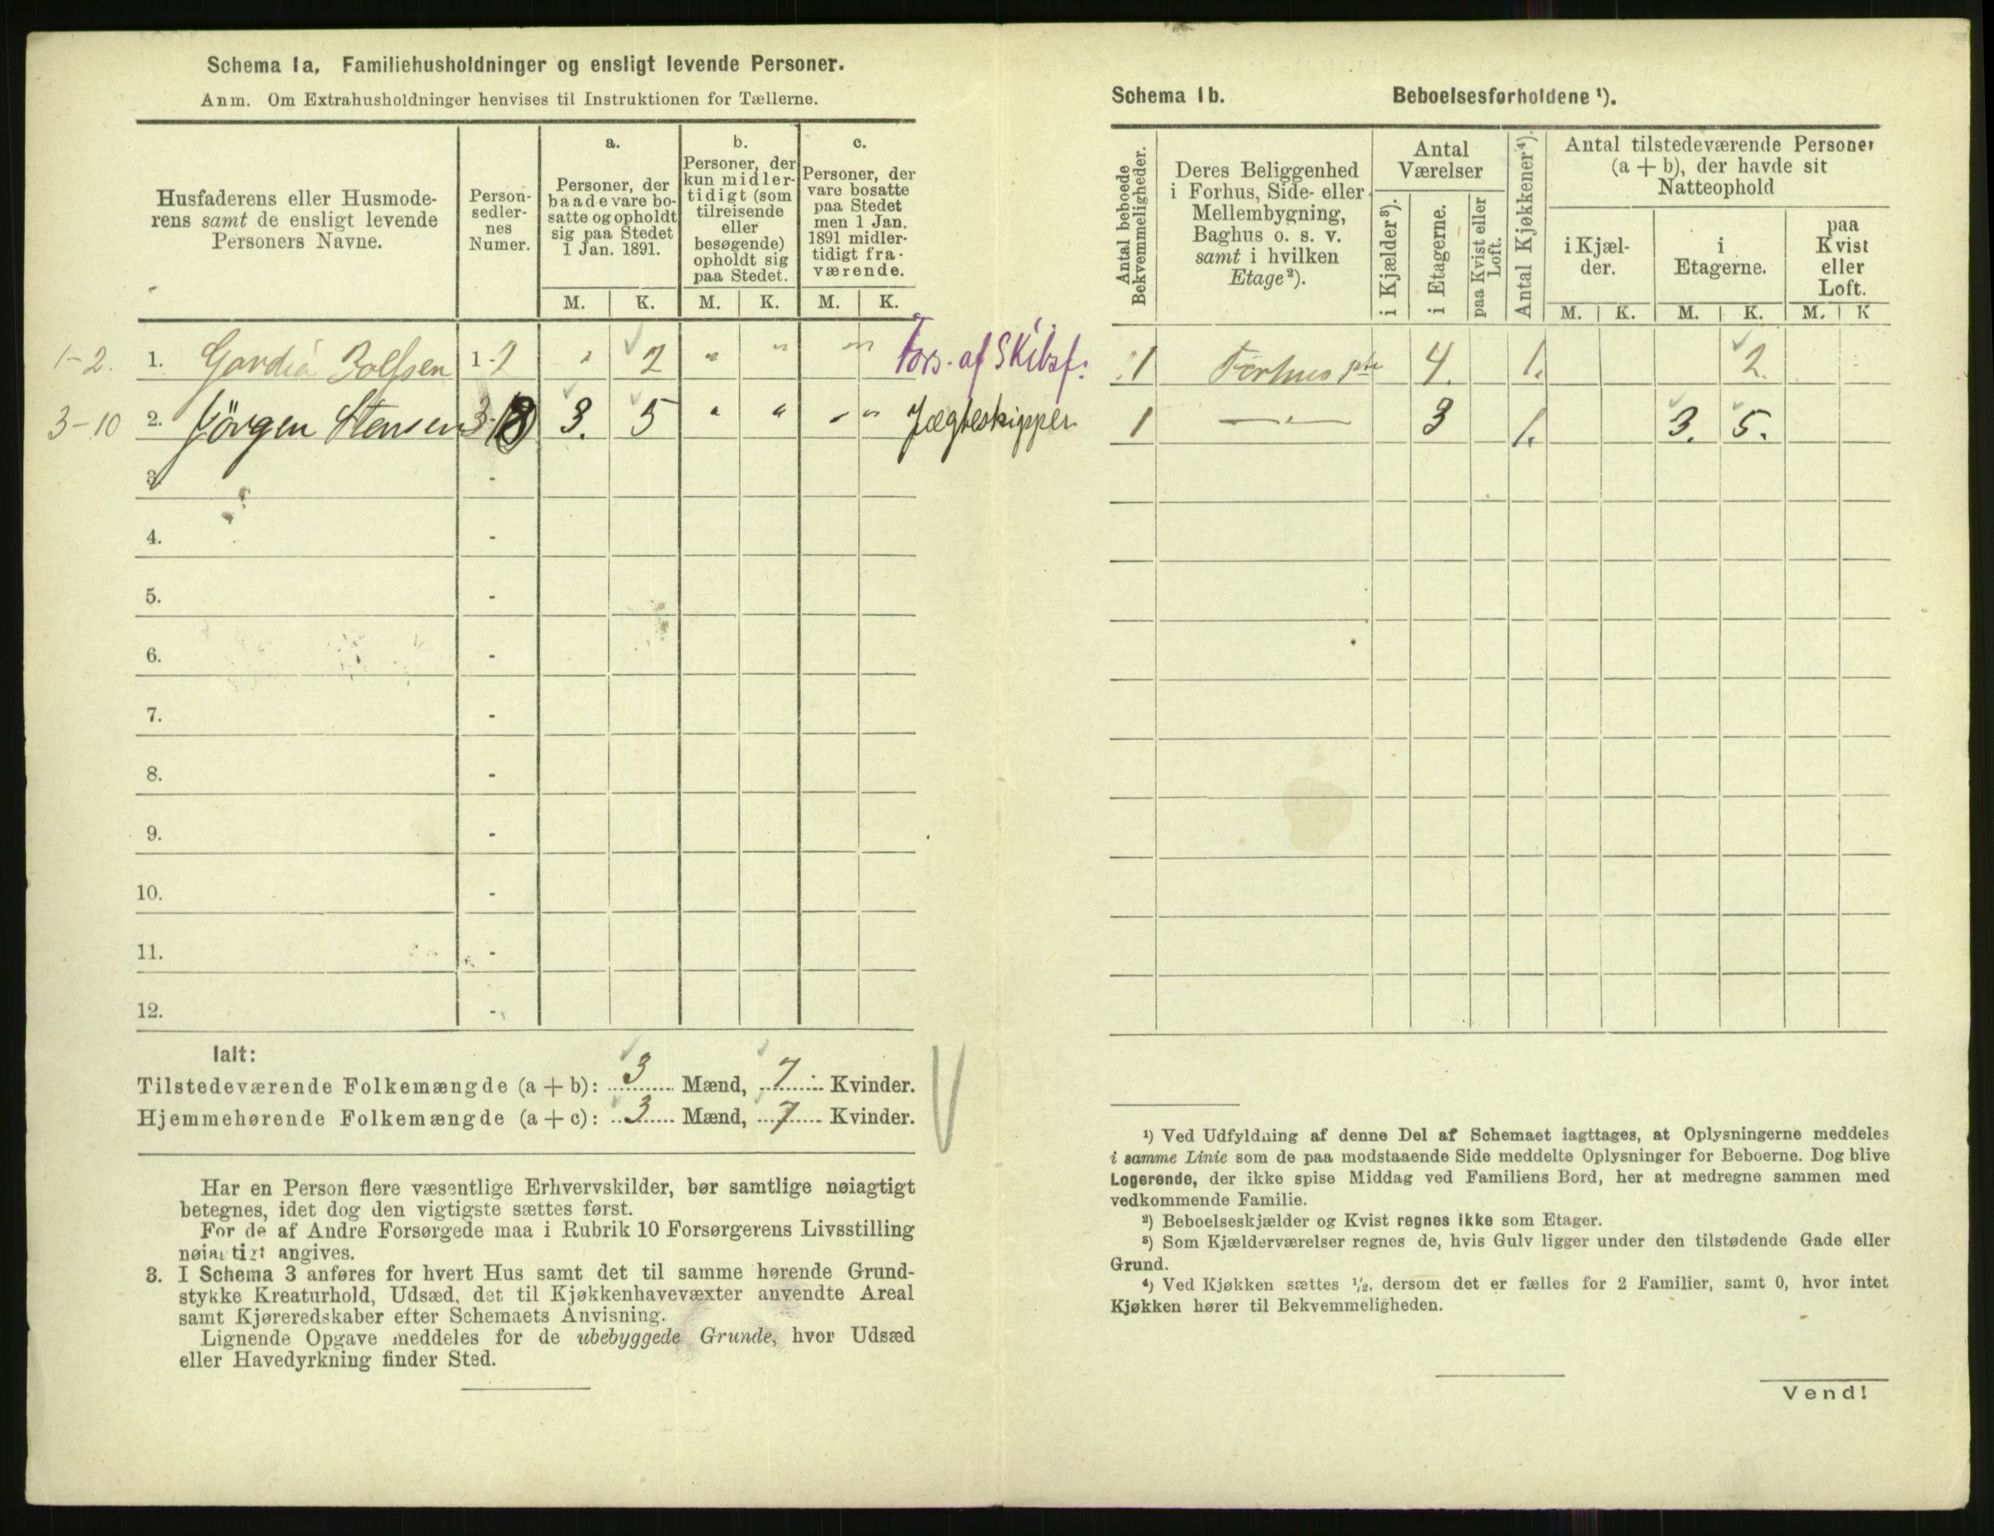 Schema 1a. Familiehusholdninger og ensligt levende Personer.
Anm. Om Extrahusholdninger henvises til Instruktionen for Tællerne.
Husfaderens eller Husmoderens samt de ensligt levende Personers Navne.
Personsedlernes Numer.
a.
Personer, der baade vare bosatte og opholdt sig paa Stedet 1 Jan. 1891.
b.
Personer, der kun midlertidigt (som tilreisende eller besøgende) opholdt sig paa Stedet.
c.
Personer, der vare bosatte paa Stedet men 1 Jan. 1891 midlertidigt fraværende.
M. K. M. K. M. K.
1-2. 1. 1-2 " 2 " " " " Fors. af Skibsf:
3-10 2. Jörgen Stensen 3. 5 " " " " Jægteskipper
3. -
4. -
5. -
6. -
7. -
8. -
9. -
10. -
11. -
12. -
Ialt:
Tilstedeværende Folkemængde (a + b): 3 Mænd, 7 Kvinder.
Hjemmehørende Folkemængde (a + c): 3 Mænd, 7 Kvinder.
Har en Person flere væsentlige Erhvervskilder, bør samtlige nøiagtigt
betegnes, idet dog den vigtigste sættes først.
For de af Andre Forsørgede maa i Rubrik 10 Forsørgerens Livsstilling
nøiagtigt angives.
3. I Schema 3 anføres for hvert Hus samt det til samme hørende Grund-
stykke Kreaturhold, Udsæd, det til Kjøkkenhavevæxter anvendte Areal
samt Kjøreredskaber efter Schemaets Anvisning.
Lignende Opgave meddeles for de ubebyggede Grunde, hvor Udsæd
eller Havedyrkning finder Sted.
Schema 1b. Beboelsesforholdene ¹).
Antal beboede Bekvemmeligheder.
Deres Beliggenhed i Forhus, Side- eller Mellembygning, Baghus o. s. v. samt i hvilken Etage²).
Antal Værelser
i Kjælder³).
i Etagerne.
paa Kvist eller Loft.
Antal Kjøkkener⁴).
Antal tilstedeværende Personer (a + b), der havde sit Natteophold
i Kjælder.
i Etagerne.
paa Kvist eller Loft.
M. K. M. K. M. K
1 Forhus pte 4. 1. 2.
1 — " — 3 1. 3. 5.
¹) Ved Udfyldning af denne Del af Schemaet iagttages, at Oplysningerne meddeles
i samme Linie som de paa modstaaende Side meddelte Oplysninger for Beboerne. Dog blive
Logerende, der ikke spise Middag ved Familiens Bord, her at medregne sammen med
vedkommende Familie.
²) Beboelseskjælder og Kvist regnes ikke som Etager.
³) Som Kjælderværelser regnes de, hvis Gulv ligger under den tilstødende Gade eller
Grund.
⁴) Ved Kjøkken sættes ¹/₂, dersom det er fælles for 2 Familier, samt 0, hvor intet
Kjøkken hører til Bekvemmeligheden.
Vend!